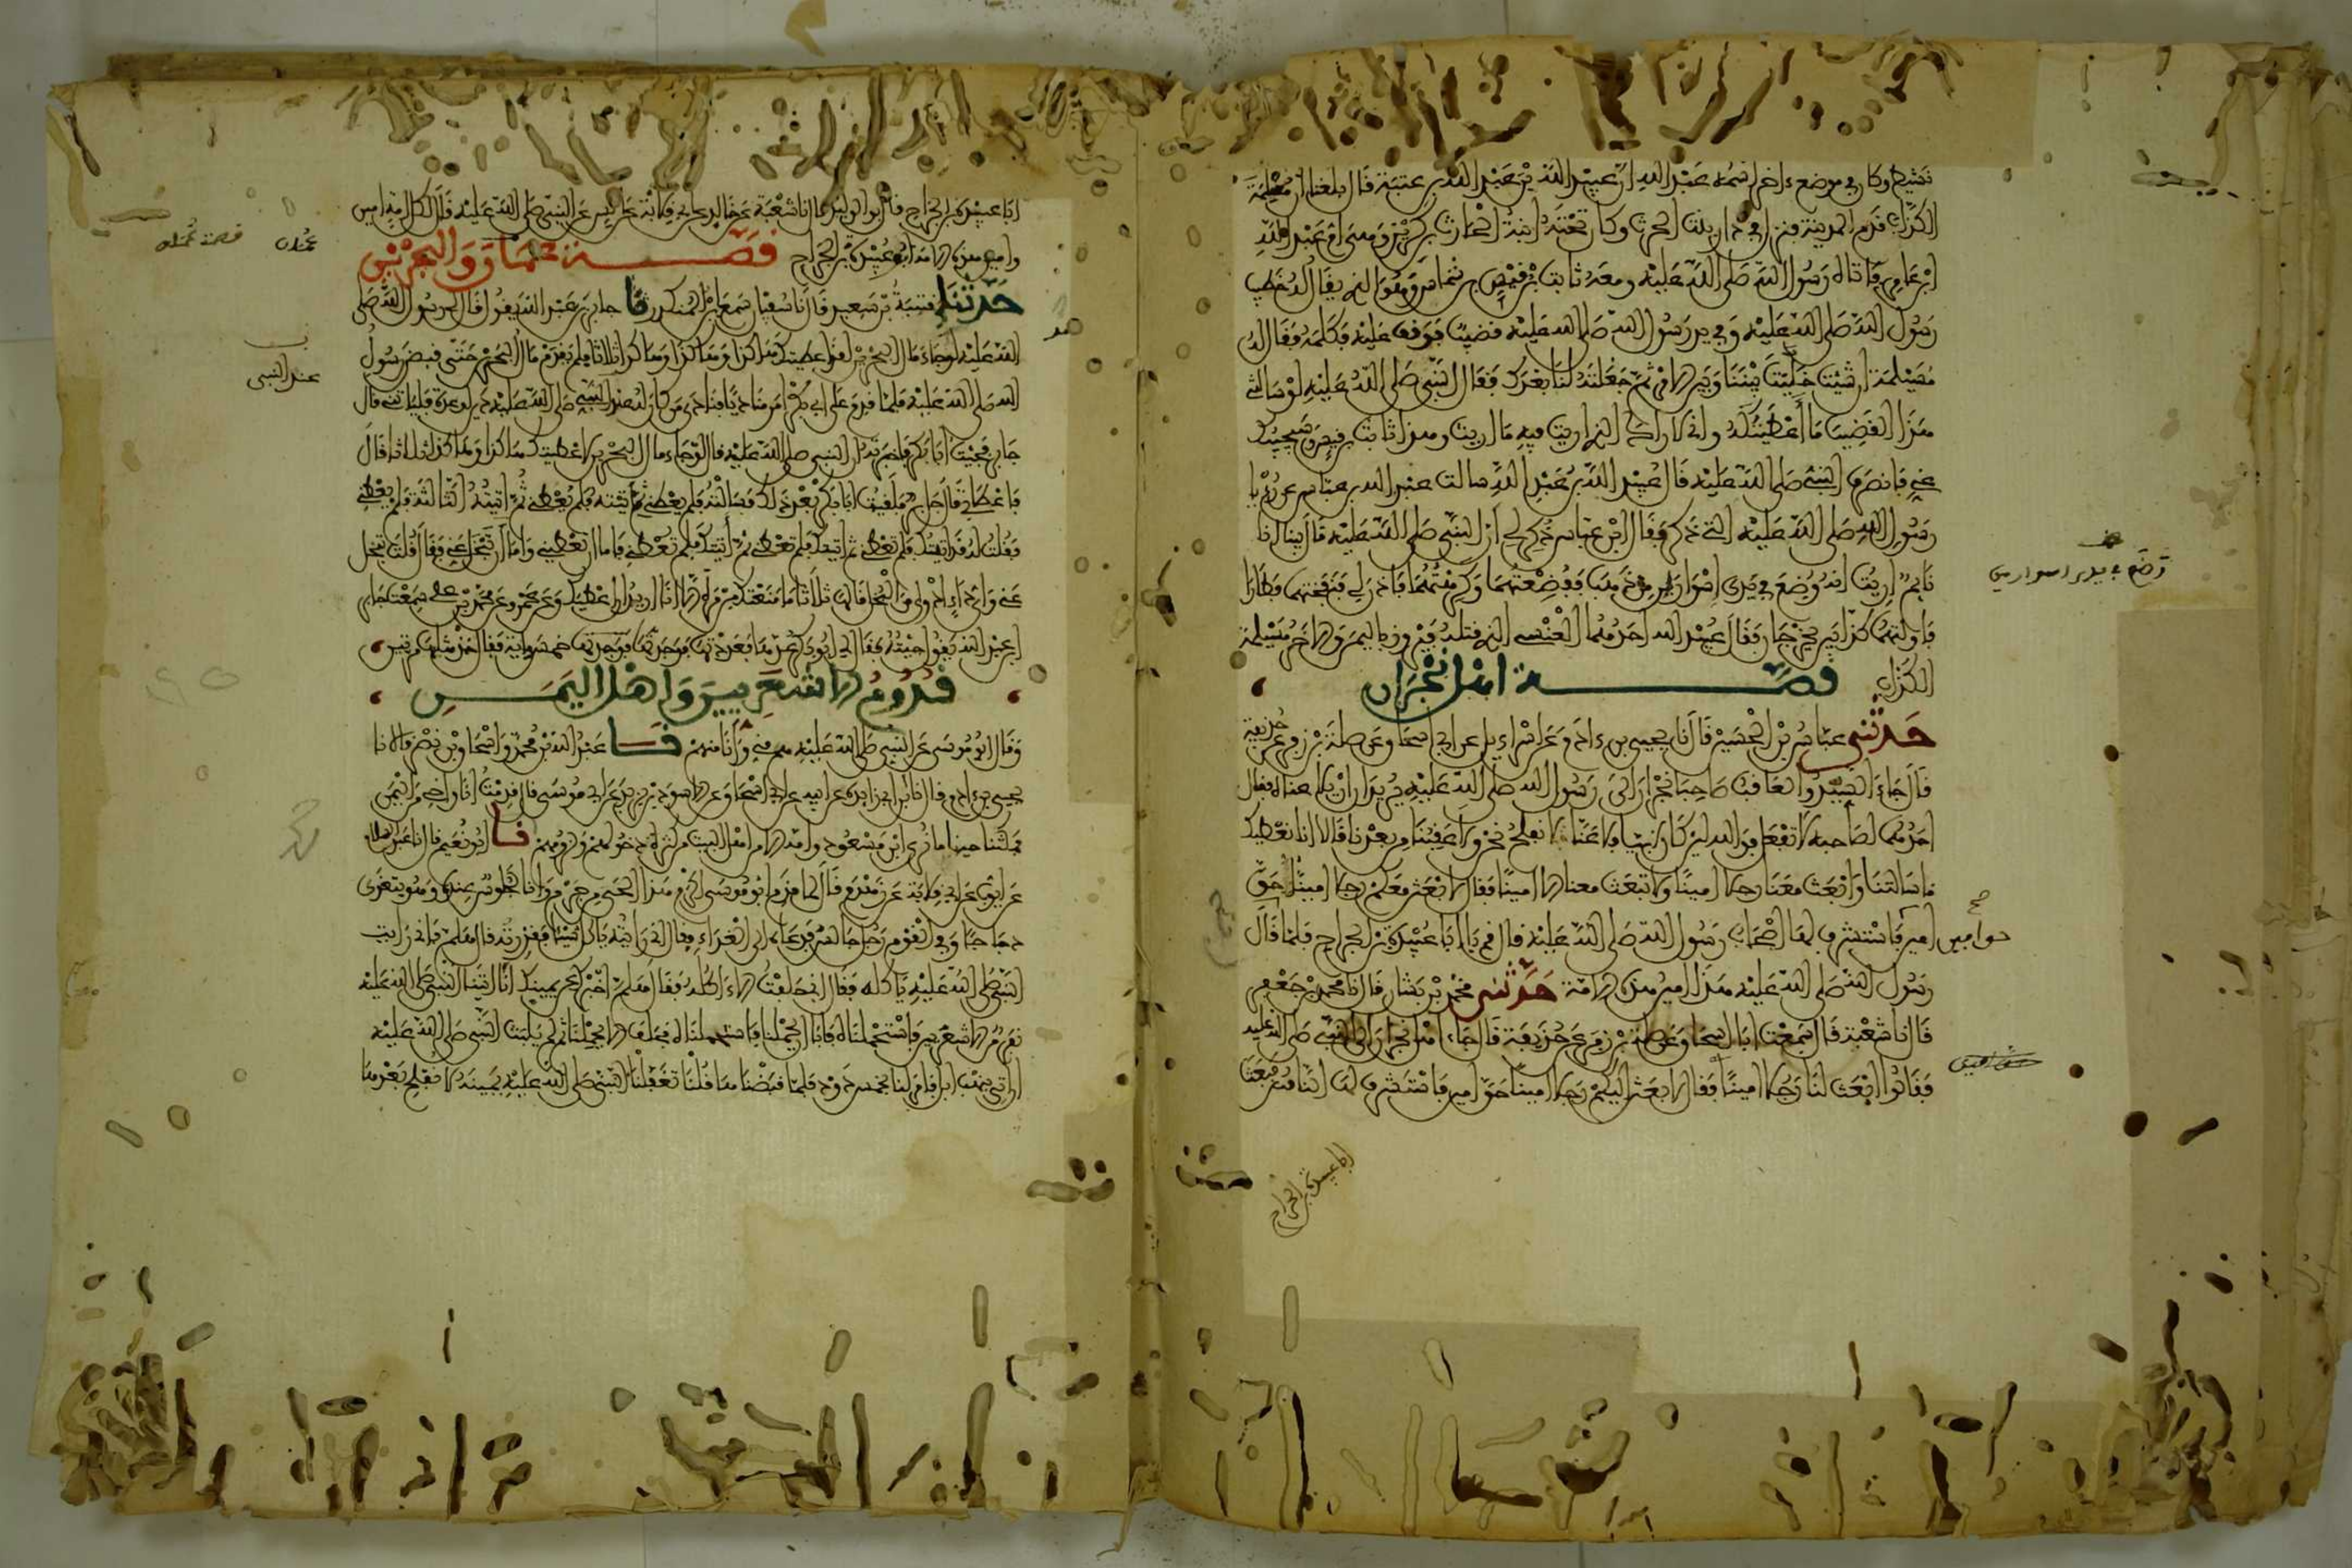 نشيط وكان في موضع ءاخر اسمه عبد الله ان عبيد الله بن عبد الله بن عتبة قال بلغنا ان مسيلمة
الكذاب قدم المدينة فنزل في دار بنت الحرث وكان تحته ابنة الحارث بن كريز وهي ام عبد الله
ابن عامر فاتاه رسول الله صلى الله عليه ومعه ثابت بن قيس بن شماس وهو الذي يقال له خطيب
رسول الله صلى الله عليه وفي يد رسول الله صلى الله عليه قضيب فوقف عليه فكلمه فقال له
مسيلمة ان شئت خليت بيننا وبين الامر ثم جعلته لنا بعدك فقال النبي صلى الله عليه لو سالتني
هذا القضيب ما أعطيتكه واني لاراك الذي اريت فيه ما اريت وهذا ثابت بن قيس وسيجيبك
عني فانصرف النبي صلى الله عليه قال عبيد الله بن عبد الله سالت عبد الله بن عباس عن رءيا
رسول الله صلى الله عليه التي ذكر فقال ابن عباس ذكر لي ان النبي صلى الله عليه قال بينا انا
نايم اريت انه وضع في يدي اسواران من ذهب ففظعتهما وكرهتهما فاذن لي فنفختهما فطارا
فاولتهما كذابين يخرجان فقال عبيد الله احدهما العنسي الذي قتله فيروز باليمن والاخر مسيلمة
الكذاب قصة اهل نجران
حدثني عباس بن الحسين قال نا يحيى بن ءادم عن اسراءيل عن ابي اسحاق عن صلة بن زفر عن حذيفة
قال جاء السيد والعاقب صاحبا نجران الى رسول الله صلى الله عليه يريدان ان يلاعناه قال فقال
احدهما لصاحبه لا تفعل فوالله لئن كان نبيا فلاعننا لا نفلح نحن ولا عقبنا من بعدنا قالا انا نعطيك
ما سالتنا وابعث معنا رجلا امينا ولا تبعث معنا الا امينا فقال لابعثن معكم رجلا امينا حق
امين فاستشرف لها اصحاب رسول الله صلى الله عليه فقال قم يا ابا عبيدة بن الجراح فلما قام قال
رسول الله صلى الله عليه هذا امين هذه الامة حدثني محمد بن بشار قال نا محمد بن جعفر
قال نا شعبة قال سمعت ابا اسحاق عن صلة بن زفر عن حذيفة قال جاء اهل نجران الى النبي صلى الله عليه
فقالوا ابعث لنا رجلا امينا فقال لابعثن اليكم رجلا امينا حق امين فاستشرف لها الناس فبعث
ابا عبيدة بن الجراح
ابا عبيدة بن الجراح قال نا ابو الوليد قال نا شعبة عن خالد عن ابي قلابة عن انس عن النبي صلى الله عليه قال لكل امة امين
وامين هذه الامة ابو عبيدة بن الجراح قصة عمان والبحرين
حدثنا قتيبة بن سعيد قال نا سفيان سمع ابن المنكدر نا جابر بن عبد الله يقول قال لي رسول الله صلى
الله عليه لو جاء مال البحرين لقد اعطيتك هكذا وهكذا وهكذا ثلاثا فلم يقدم مال البحرين حتى قبض رسول
الله صلى الله عليه فلما قدم على ابي بكر امر مناديا فنادى من كان له عند النبي صلى الله عليه دين او عدة فلياتني قال
جابر فجيت ابا بكر فاخبرته ان النبي صلى الله عليه قال لو جاء مال البحرين اعطيتك هكذا وهكذا ثلاثا قال
فاعطاني قال جابر فلقيت ابا بكر بعد ذلك فسالته فلم يعطني ثم اتيته فلم يعطني ثم اتيته الثالثة فلم يعطني
فقلت له قد اتيتك فلم تعطني ثم اتيتك فلم تعطني ثم أتيتك فلم تعطني فاما ان تعطيني واما ان تبخل عني فقال أقلت تبخل
عني واي داء ادوى من البخل قالها ثلاثا ما منعتك من مرة الا انا اريد ان اعطيك وعن عمرو عن محمد بن علي سمعت جابر
ابن عبد الله يقول جيته فقال لي ابو بكر عدها فعددتها فوجدتها خمس ماية فقال خذ مثلها مرتين
قدوم الاشعريين واهل اليمن
وقال ابو موسى عن النبي صلى الله عليه هم مني وأنا منهم نا عبد الله بن محمد واسحاق بن نصر قالا نا
يحيى بن ءادم قال نا ابن ابي زايدة عن ابيه عن ابي اسحاق عن الاسود بن يزيد عن ابي موسى قال قدمت انا واخي من اليمن
فمكثنا حينا ما نرى ابن مسعود وامه الا من اهل البيت من كثرة دخولهم ولزومهم نا ابو نعيم قال نا عبد السلام
عن ايوب عن ابي قلابة عن زهدم قال لما قدم ابو موسى اكرم هذا الحي من جرم وانا لجلوس عنده وهو يتغدى
دجاجا وفي القوم رجل جالس فدعاه الى الغداء فقال اني رايته ياكل شيئا فقذرته فقال هلم فاني رايت
النبي صلى الله عليه ياكله فقال اني حلفت لا ءاكله فقال هلم اخبرك عن يمينك انا اتينا النبي صلى الله عليه
نفر من الاشعريين فاستحملناه فابى ان يحملنا فاستحملناه فحلف الا يحملنا ثم لم يلبث النبي صلى الله عليه
ان اتي بنهب ابل فامر لنا بخمس ذود فلما قبضنا هاقلنا تغفلنا النبي صلى الله عليه يمينه لا نفلح بعدها
عند النبي
قصة عمان
عمان
وضع في يدي اسوارين